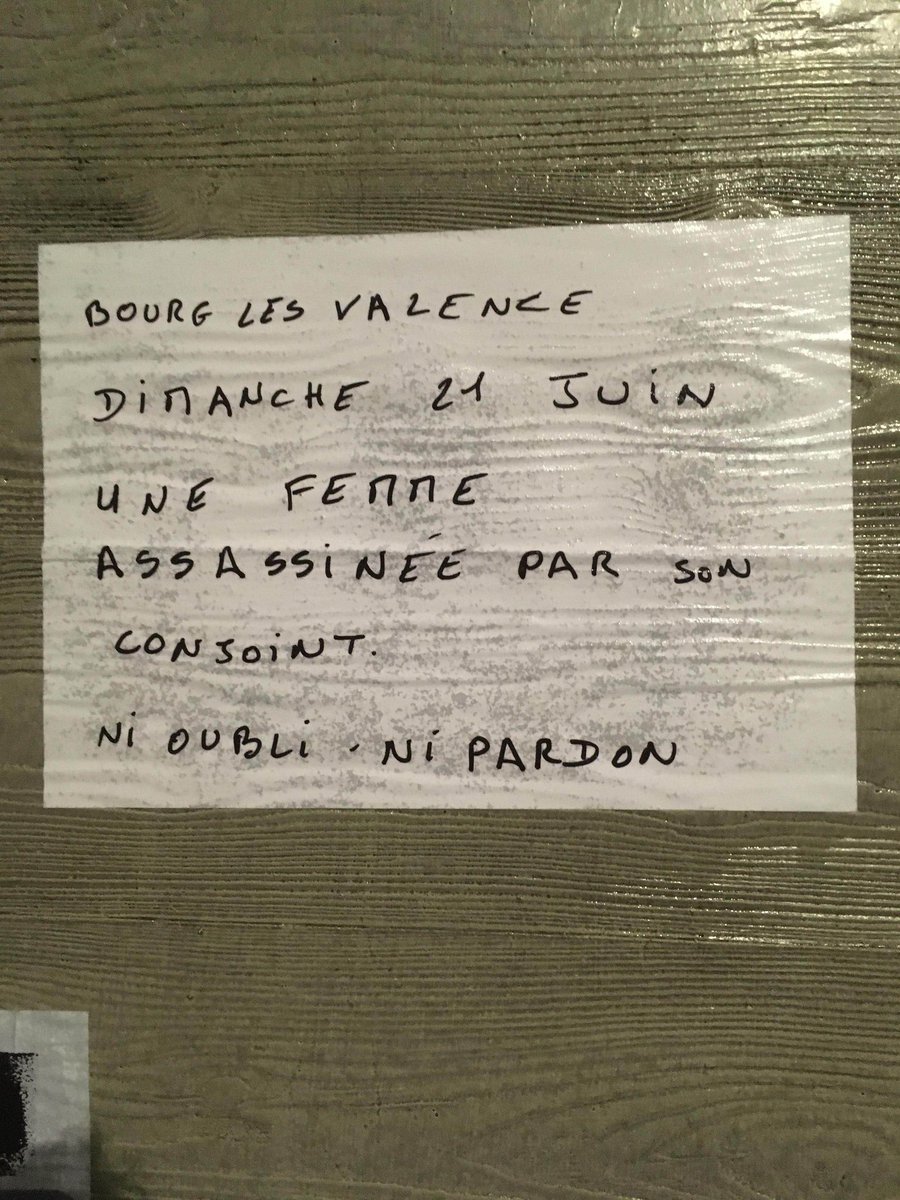 BOURG LES VALENCE
DIMANCHE 21 JUIN
UNE FEMME
ASSASSINÉE PAR SON
CONJOINT.
NI OUBLI . NI PARDON